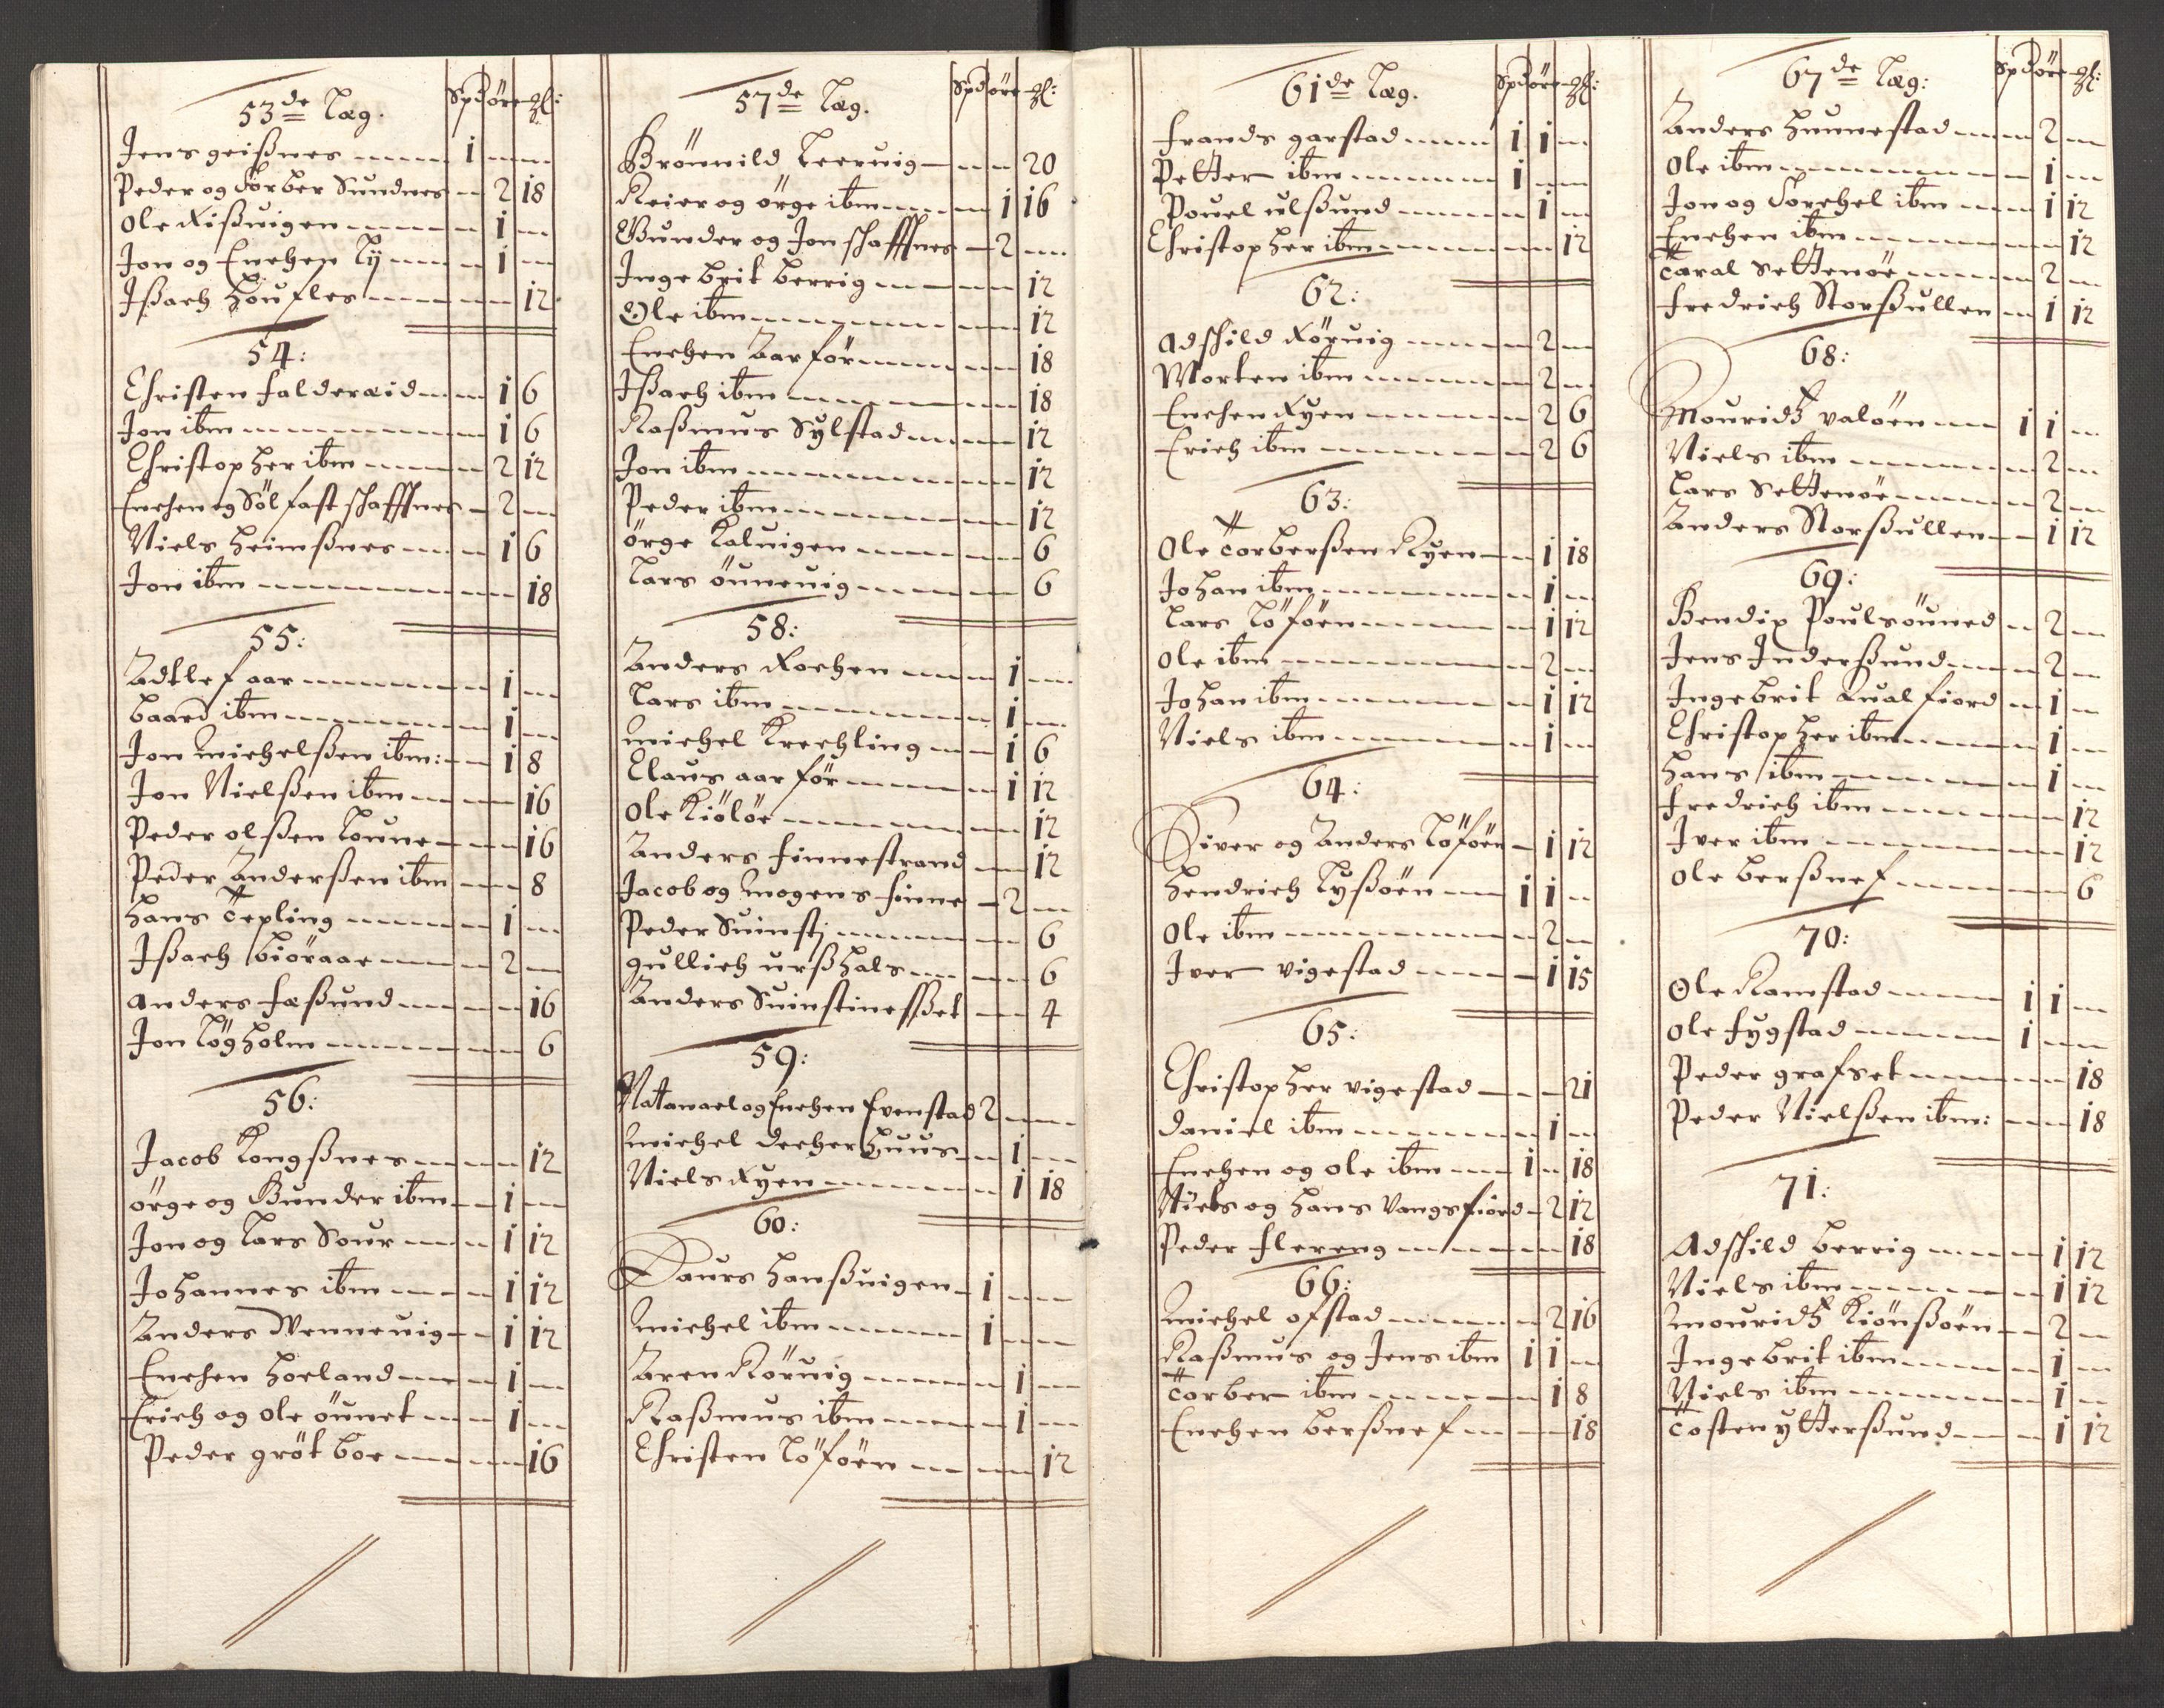 53de Læg. Spd öre gl:
Jens geißnes 1
Peder og Torber Sundnes 2 18
Ole Rißvigen 1
Jon og Enchen Ly 1
Ißach Houfles 12
54:
Christen falderæid 1 6
Jon ibm 1 6
Christopher ibm 2 12
Enchen og Sölfast schaffnes 2
Niels heimßnes 1 6
Jon ibm 18
55:
Adtlef aar 1
baard ibm 1
Jon Michelßen ibm: 1 8
Jon Nielßen ibm 16
Peder olßen Loune 16
Peder Anderßen ibm 8
Hans Tepling 1
Ißach biöraae 2
anders faßund 16
Jon Lögholm 6
56:
Jacob Kongßnes 12
örge og Gunder ibm 1
Jon og Lars Sour 1 12
Johannes ibm 1 12
Anders Wennevig 1 12
Enchen hoeland 1
Erich og ole öunet 1
Peder grötboe 16
57de Læg. Spd öre gl:
Brönnild Leervig 20
Reier og örge ibm 1 16
Gunder og Jon schaffnes 2
Ingebrit berrig 12
Ole ibm 12
Enchen Aarför 18
Ißach ibm 18
Raßmus Sylstad 12
Jon ibm 12
Peder ibm 12
örge Kalvigen 6
Lars öunevig 6
58:
Anders Rochen 1
Lars ibm 1
Michel Krechling 1 6
Claus aarför 1 12
Ole Kiölöe 12
Anders finnestrand 12
Jacob og Mogens finne 2
Peder Svinstj 6
gullich urßhals 6
Anders Svinstineßet 4
59:
Natanael og Enchen Evenstad 2
Michel deecherhuus 1
Niels Ryen 1 18
60:
Laurs hanßvigen 1
Michel ibm 1
Aren Rörvig 1
Raßmus ibm 1
Christen Löföen 12
61de Læg. Spd öre gl:
frands garstad 1 1
Petter ibm 1
Pouel ulßund 1
Christopher ibm 12
62:
Adschild Rörvig 2
Morten ibm 2
Enchen Ryen 2 6
Erich ibm 2 6
63:
Ole Torberßen Ryen 1 18
Johan ibm 1
Lars Löföen 1 12
Ole ibm 2
Johan ibm 1 12
Niels ibm 1
64:
Siver og Anders Löföen 1 12
Hendrich Lyßöen 1 1
Ole ibm 2
Iver vigestad 1 15
65:
Christopher vigestad 21
Daniel ibm 1
Enchen og ole ibm 1 18
Niels og Hans Vangsfiord 2 12
Peder flereng 18
66:
Michel ofstad 2 16
Raßmus og Jens ibm 1 1
Torber ibm 1 8
Enchen berßnef 18
67de Læg: Spd öre gl:
Anders hunnestad 2
Ole ibm 1
Jon og Torchel ibm 1 12
Enchen ibm 12
Taral Settenöe 2
fredrich Storßullen 1 12
68:
Mouridtz valöen 1 1
Niels ibm 2
Lars Settenöe 2
Anders Storßullen 1 12
69:
Bendix Poulsöuned 2
Jens Inderßund 2
Ingebrit Qualfiord 1
Christopher ibm 1
Hans ibm 1
fredrich ibm 12
Iver ibm 12
Ole berßnef 6
70:
Ole Ramstad 1 1
Ole fygstad 1
Peder grafset 18
Peder Nielßen ibm: 18
71:
Adschild berrig 1 12
Niels ibm 1 12
Mouridtz Kiönßöen 2
Ingebrit ibm 1
Niels ibm 1
Tosten ytterßund 1 12